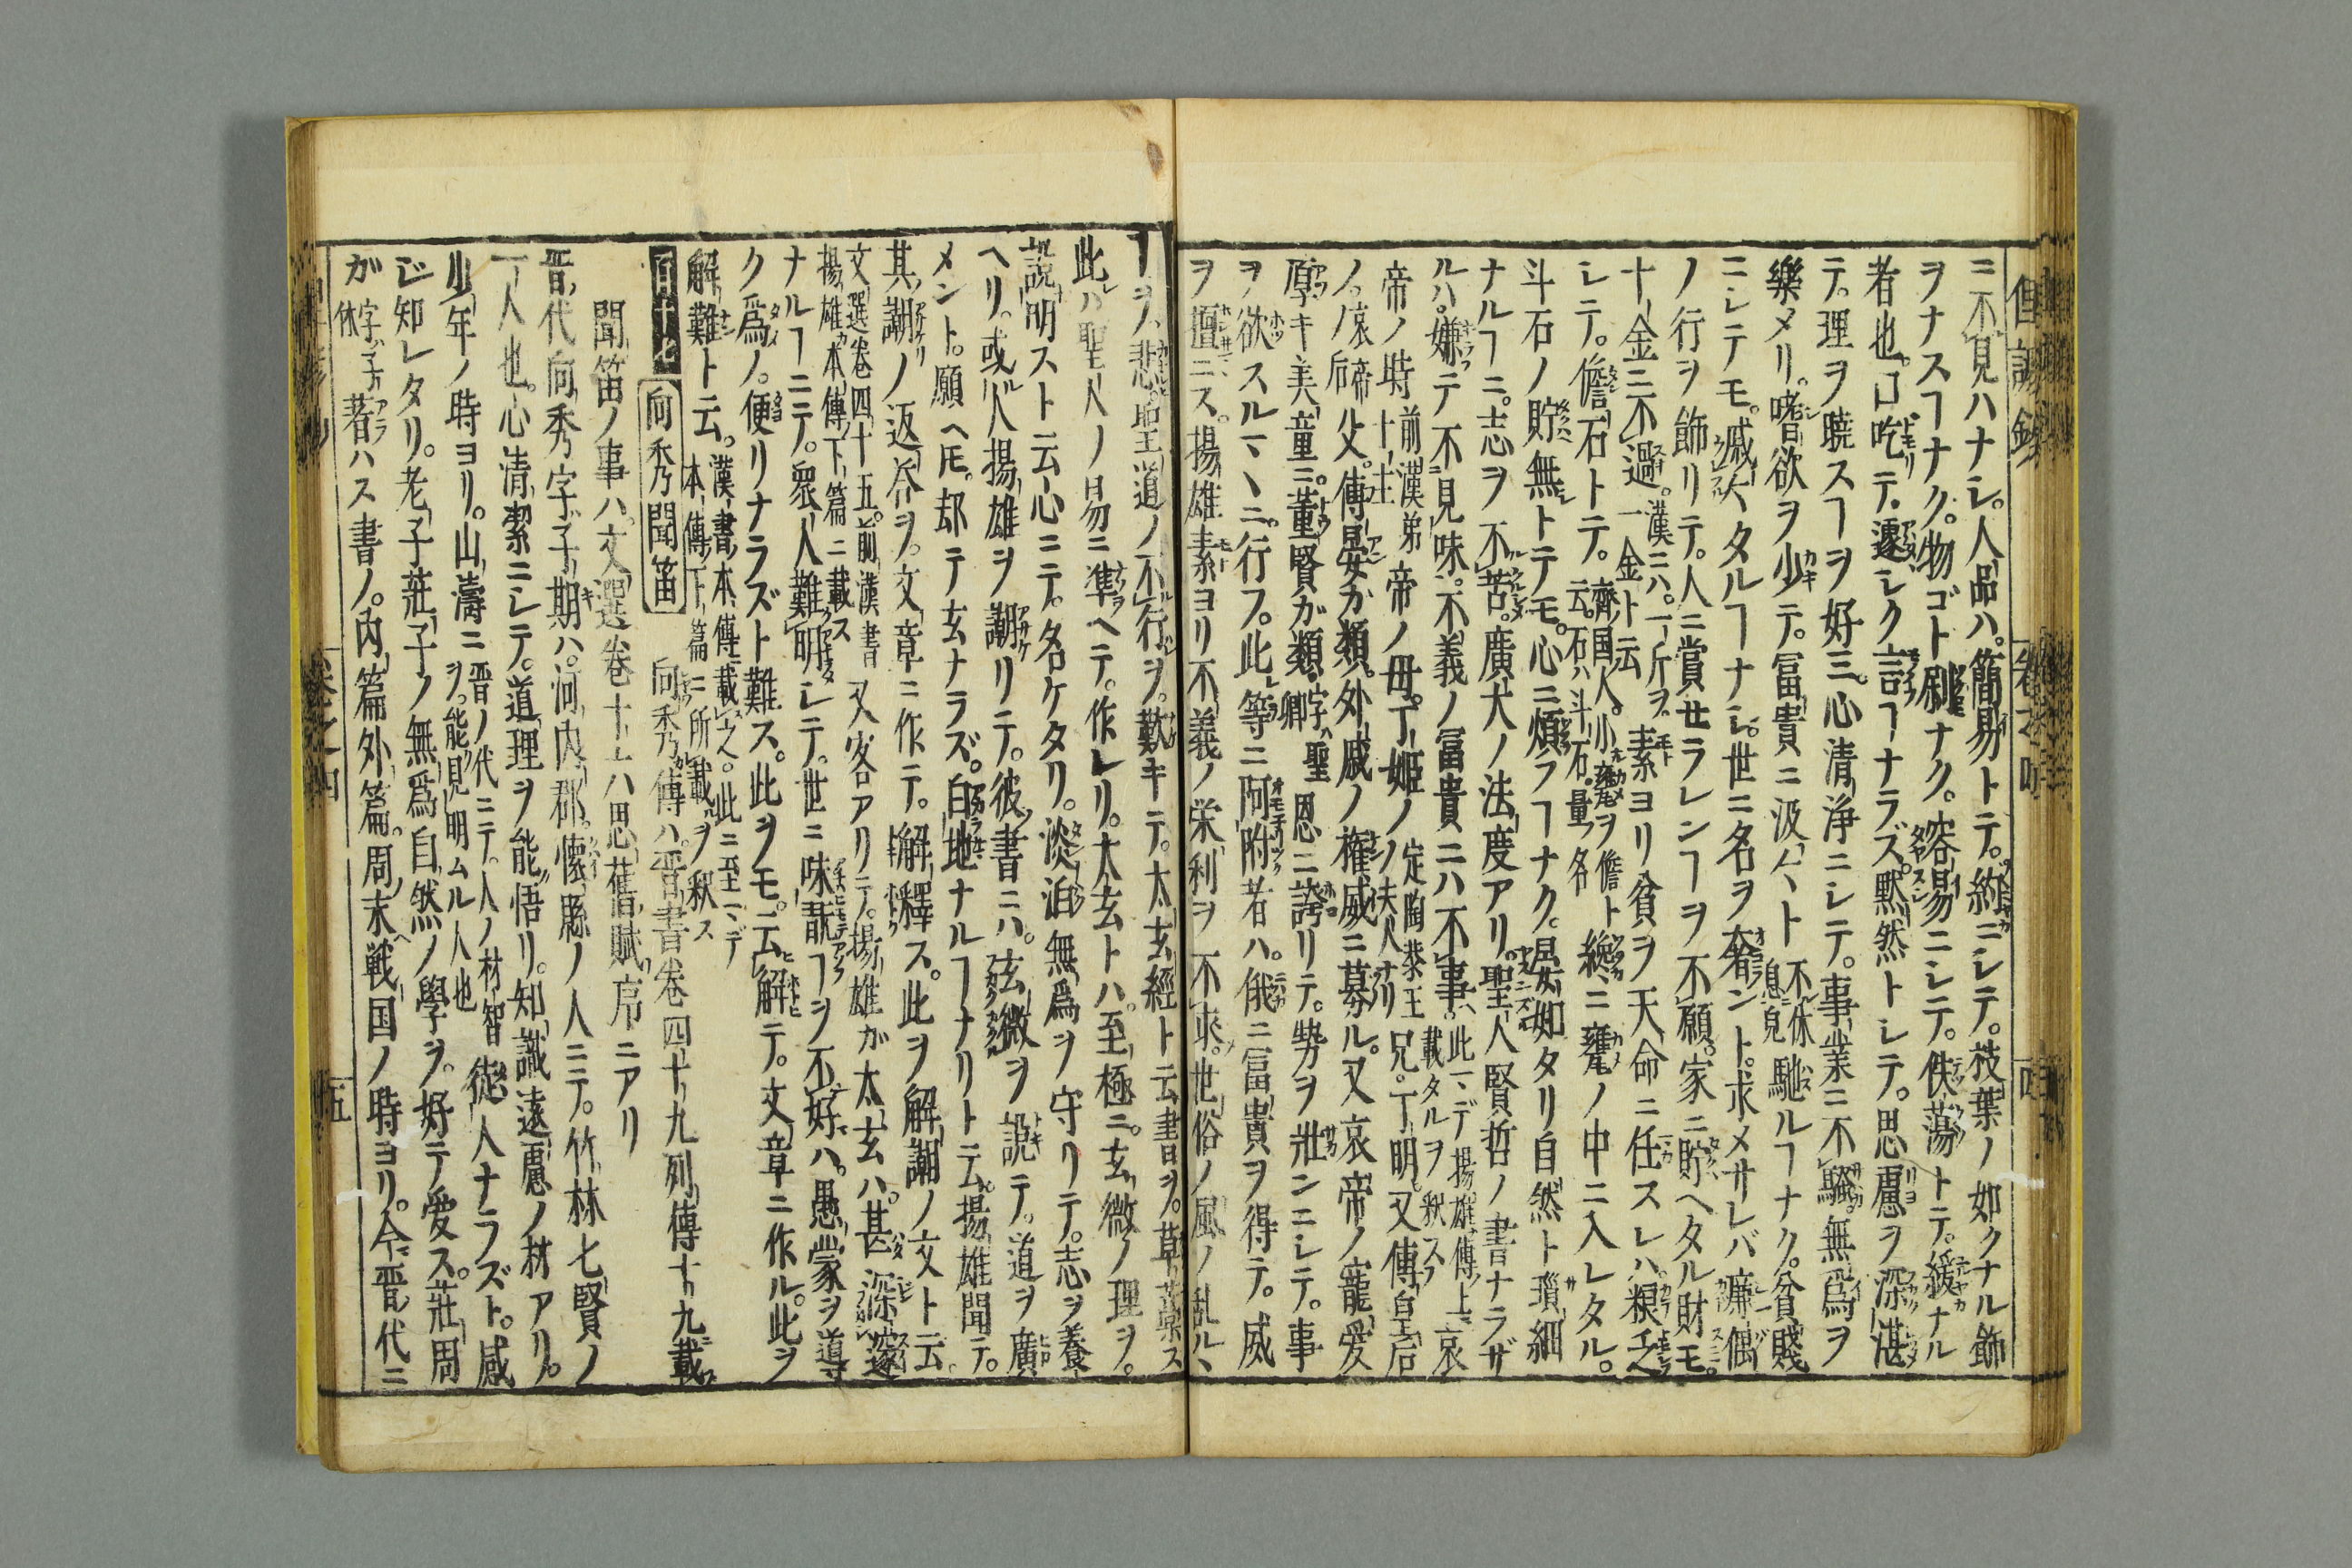 ニ不見ハナシ。人品ハ。簡易トテ。縦ニシテ。枝葉ノ如クナル飾
ヲナスヿナク。物ゴトナク。容易ニシテ。佚蕩トテ。緩ナル
者也。口吃テ。遽シク言ヿナラズ。黙然トシテ。思慮ヲ深湛
テ。理ヲ曉スヿヲ好ミ。心清浄ニシテ。事業ニ不騒。無爲ヲ
樂メリ。嗜欲ヲ少テ。冨貴ニ汲々ト不休息皃馳ルヿナク。貧賤
ニシテモ。戚々タルヿナシ。世ニ名ヲントト。求メサレバ
ノ行ヲ飾リテ。人ニ賞セラレンヿヲ不願。家ニ貯ヘタル財モ。
十金ニ不過。漢ニハ。一斤ヲ一金ト云素ヨリ貧ヲ天命ニ任スレハ。粮乏
シテ。儋石トテ。齊国人。小甕ヲ儋ト云。石ハ斗石。量ノ名纔ニ甕ノ中ニ入レタル。
斗石ノ貯無トテモ。心ニ煩フヿナク。晏如タリ自然ト瑣細
ナルヿニ。志ヲ不苦。廣大ノ法度アリ。聖人賢哲ノ書ナラザ
ルハ。嫌テ不見味。不義ノ冨貴ニハ不事。此ヽデ揚雄傳上ニ載タルヲ釈ス哀
帝ノ時前漢第十主帝ノ母。丁姫ノ定陶恭王ノ夫人ナリ兄。丁明。又傳皇后
ノ。哀帝后父。傳晏カ類。外戚ノ権威ニ募ル。又哀帝ノ寵愛
厚キ美童ニ。董賢ガ類。字ハ聖卿恩ニ誇リテ。勢ヲ壯ンニシテ。事
ヲ欲スルマヽニ。行フ。此等ニ阿附者ハ。俄ニ冨貴ヲ得テ。威
ヲ擅ニス。揚雄素ヨリ不義ノ栄利ヲ不求。世俗ノ風ノ乱ルヽ
ヿヲ悲。聖道ノ不行ヲ。歎キテ。太玄經ト云書ヲ。草藁ス
此ハ聖人ノ易ニ準ヘテ。作レリ。太玄トハ。至極ニ。玄微ノ理ヲ。
說明スト云心ニテ。名ケタリ。淡泊無爲ヲ守リテ。志ヲ養
ヘリ。或人揚雄ヲ謿リテ。彼書ニハ。玄微ヲ說テ。道ヲ廣
メント。願ヘ𪜈。却テ玄ナラズ。白地ナルヿナリト云。揚雄聞テ。
其謿ノ返答ヲ。文章ニ作テ。解釋ス。此ヲ解謿ノ文ト云。
文選卷四十五。前漢書揚雄本傳下篇ニ載ス又客アリテ。揚雄ガ太玄ハ。甚深邃
ナルヿニテ。衆人難明シテ。世ニ味翫ヿヲ不好ハ。愚蒙ヲ導
ク爲ノ。便リナラズト難ス。此ヲモ。云解テ。文章ニ作ル。此ヲ
解難ト云。漢書本傳ニ載之。此ニ至マデ本傳下篇ニ所載ヲ釈ス
百十七 向秀聞笛 向秀傳ハ。晋書卷四十九列傳十九載ス
聞笛ノ事ハ。文選卷十六思舊賦序ニアリ
晋代向秀字子期ハ。河内郡。懐縣ノ人ニテ。竹林七賢ノ
一人也。心清潔ニシテ。道理ヲ能悟リ。知識遠慮ノ材アリ。
少年ノ時ヨリ。山濤ニ晋ノ代ニテ。人ノ材智ヲ。能見明ムル人也徒人ナラズト。感
ジ知レタリ。老子莊子ノ無爲自然ノ學ヲ。好テ愛ス。莊周
ガ字ハ子休著ハス書ノ。内篇外篇。周末戦国ノ時ヨリ。今晋代ニ
五